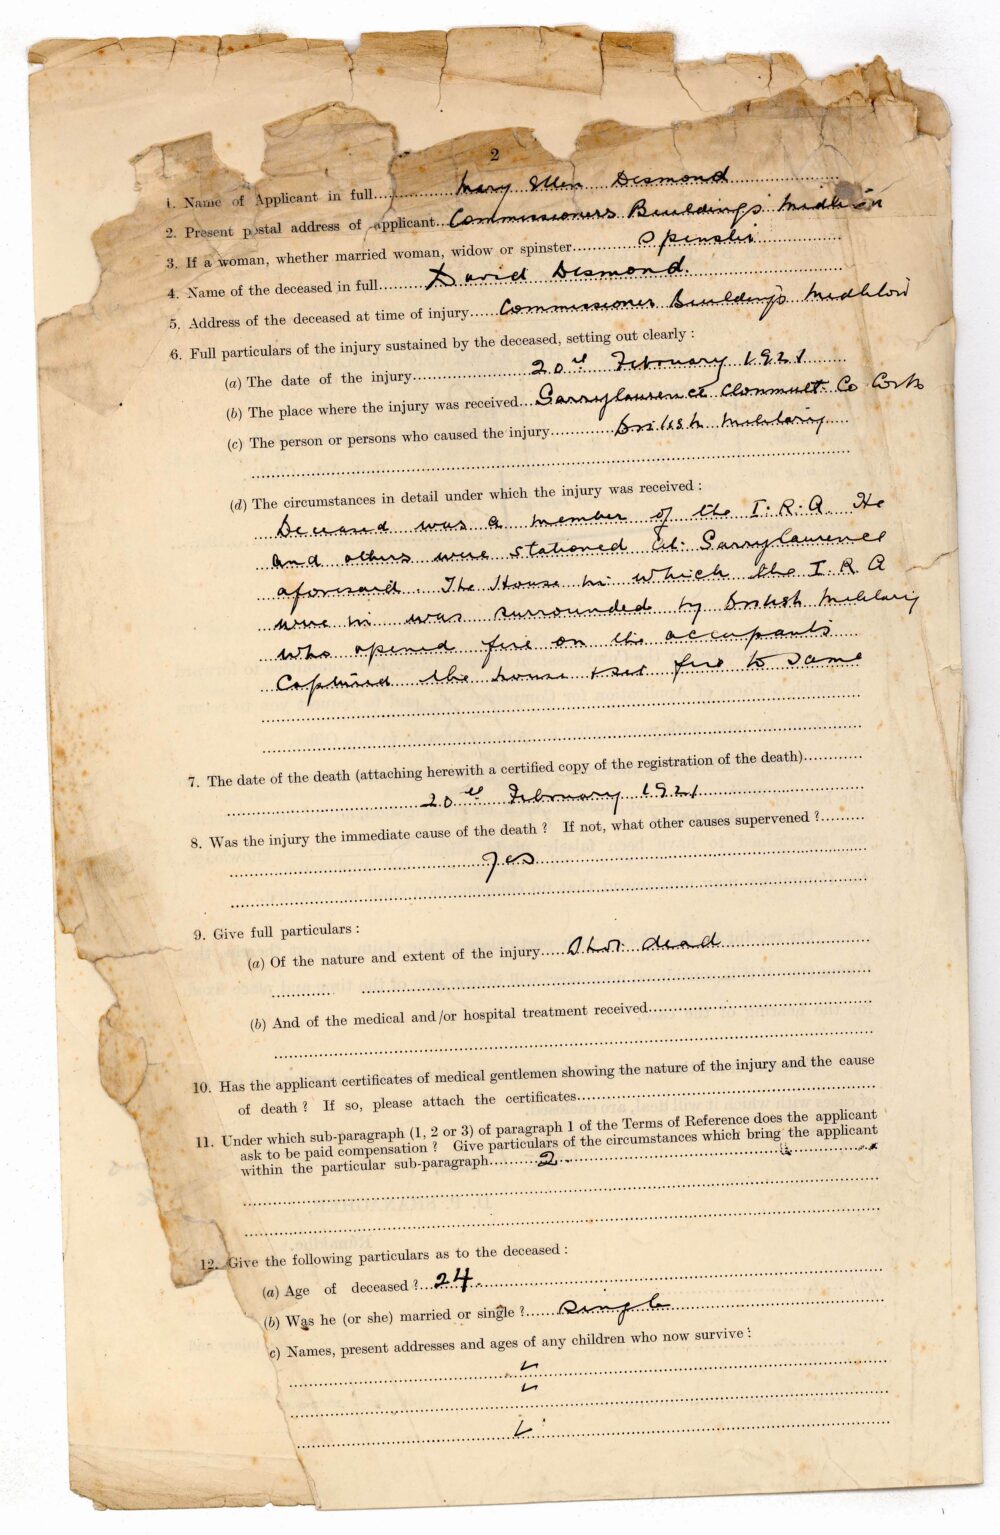 2
1. Name of Applicant in full Mary Ellen Desmond
2. Present postal address of applicant Commissioners Buildings Midleton
3. If a woman, whether married woman, widow or spinster Spinster
4. Name of the deceased in full David Desmond.
5. Address of the deceased at time of injury Commissioner Buildings Midleton
6. Full particulars of the injury sustained by the deceased, setting out clearly :
(a) The date of the injury 20th February 1921
(b) The place where the injury was received Garrylaurence Clonmult Co Cork
(c) The person or persons who caused the injury British Military
(d) The circumstances in detail under which the injury was received :
Deceased was a member of the I.R.A. He
and others were stationed at Garrylaurence
aforesaid. The House in which the I.R A
were in was surrounded by British Military
who opened fire on the occupants
Captured the house & set fire to same
7. The date of the death (attaching herewith a certified copy of the registration of the death)
20th February 1921
8. Was the injury the immediate cause of the death ? If not, what other causes supervened ?
Yes
9. Give full particulars :
(a) Of the nature and extent of the injury Shot dead
(b) And of the medical and/or hospital treatment received
10. Has the applicant certificates of medical gentlemen showing the nature of the injury and the cause
of death ? If so, please attach the certificates
11. Under which sub-paragraph (1, 2 or 3) of paragraph 1 of the Terms of Reference does the applicant
ask to be paid compensation ? Give particulars of the circumstances which bring the applicant
within the particular sub-paragraph 2.
12. Give the following particulars as to the deceased :
(a) Age of deceased ? 24.
(b) Was he (or she) married or single ? Single
c) Names, present addresses and ages of any children who now survive :